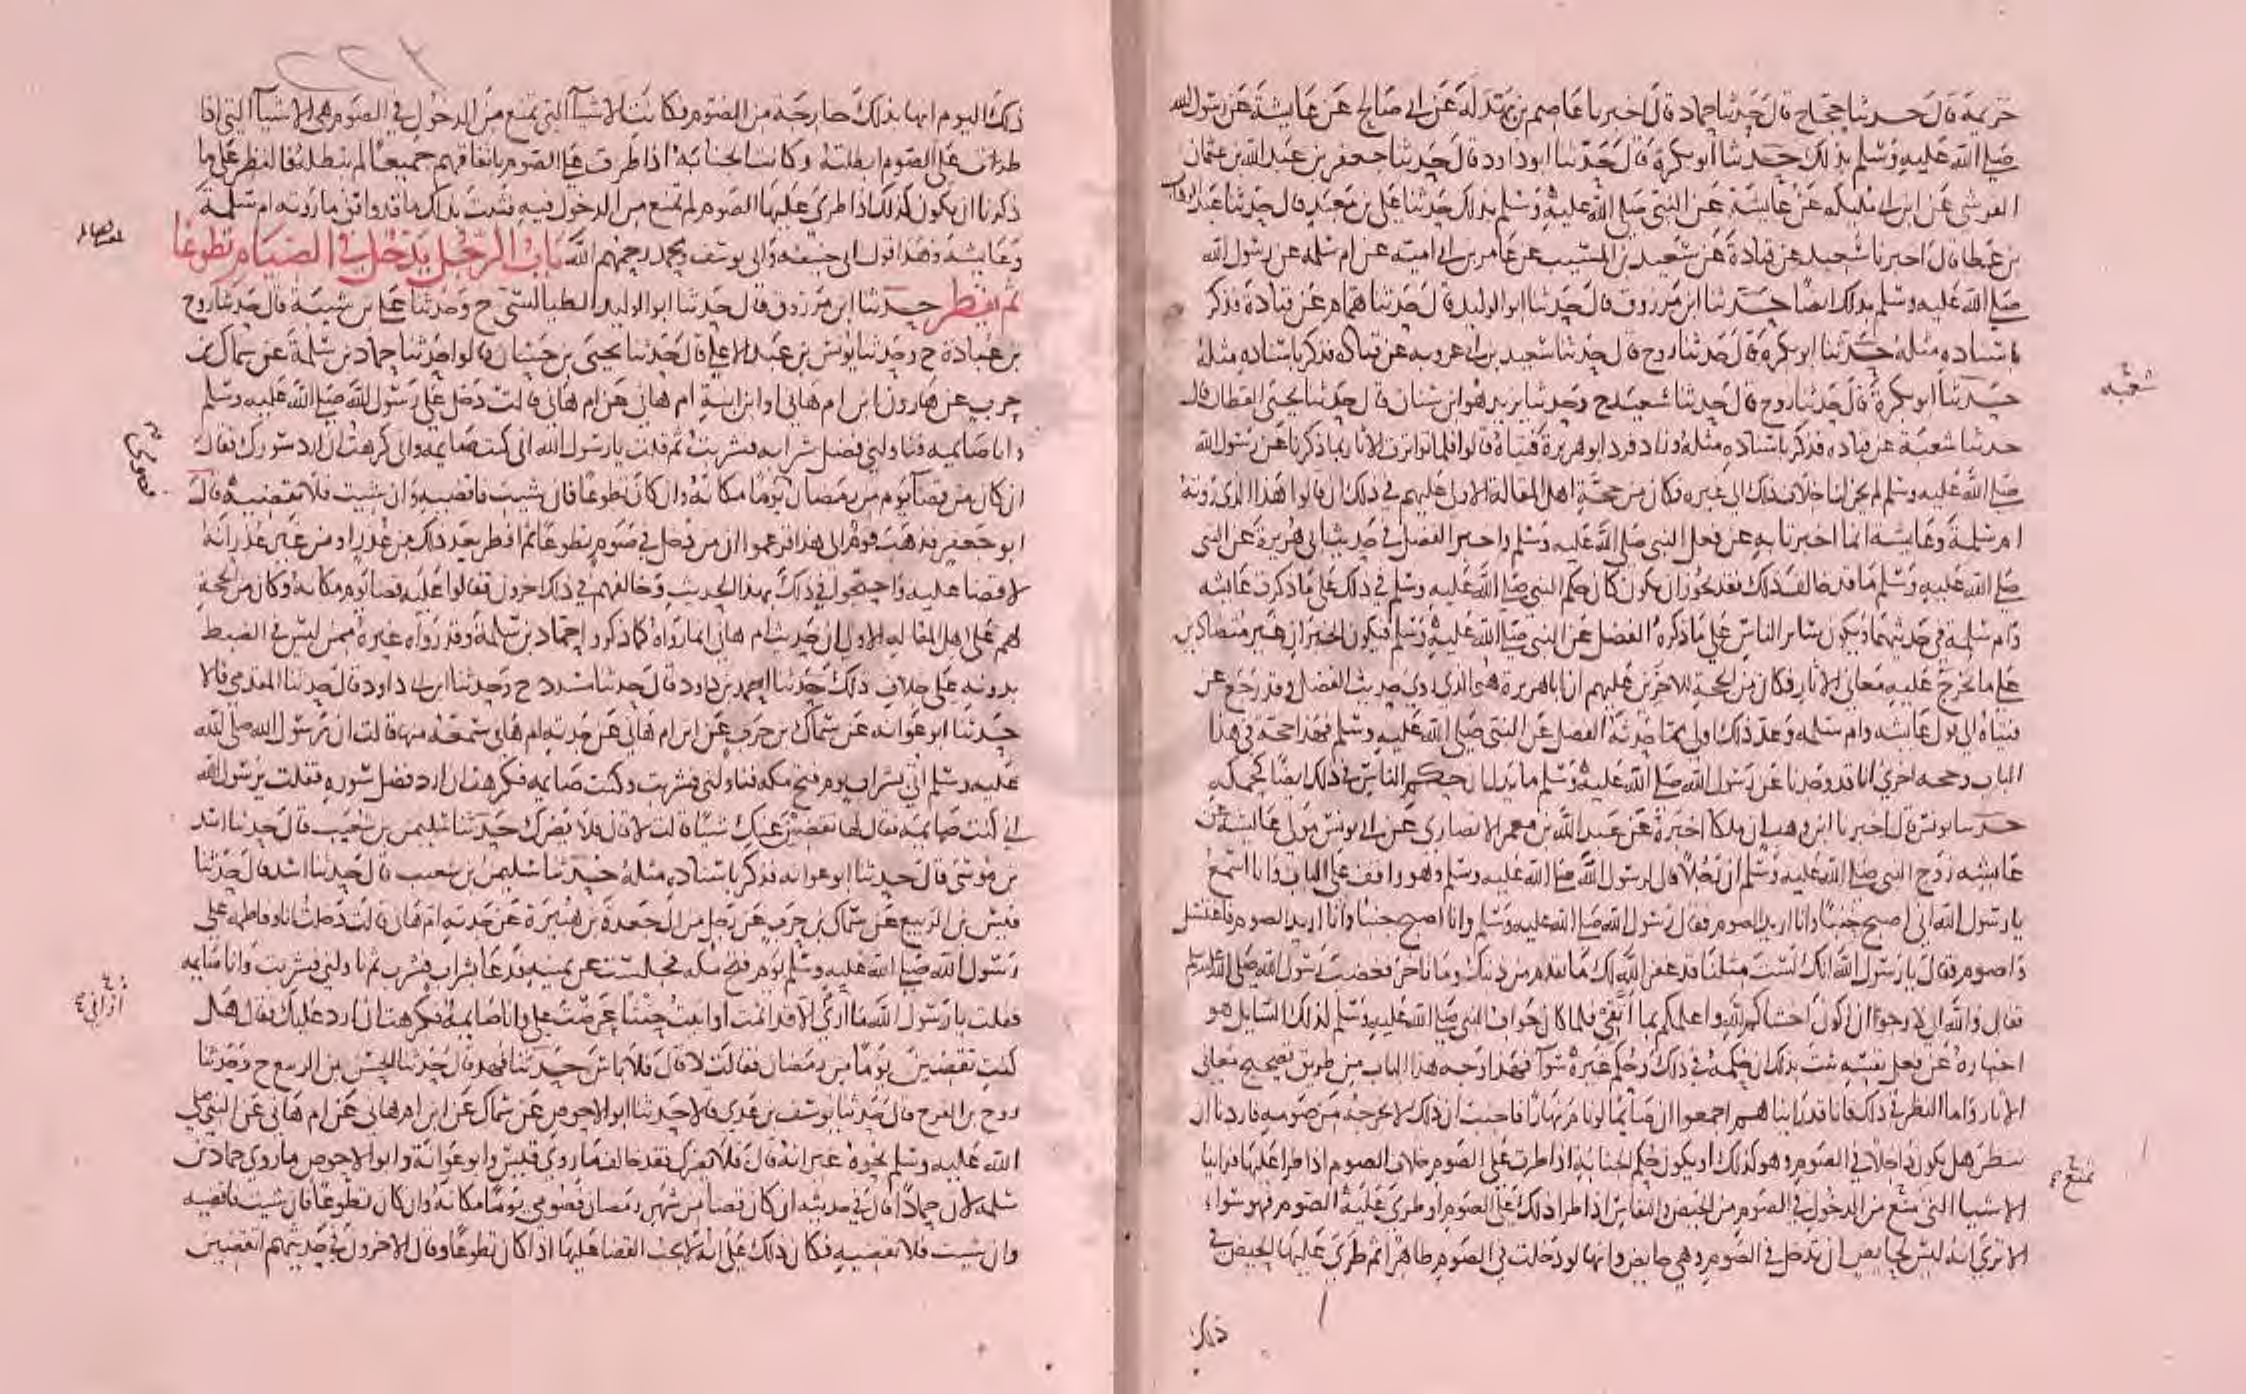 خزيمة قال حدثنا حجاج قال حدثنا حماد قال اخبرنا عاصم بن بهدلة عن ابي صالح عن عايشة عن رسول الله
صلى الله عليه وسلم بذلك حدثنا ابو بكرة قال حدثنا ابو داود قال حدثنا جعفر بن عبد الله بن عثمان
القرشي عن ابن ابي مليكه عن عايشة عن النبي صلى الله عليه وسلم بذلك حدثنا علي بن معبد قال حدثنا عبد الوهاب
بن عطا قال اخبرنا سعيد عن قتادة عن سعيد بن المسيب عن عامر بن ابي امية عن ام سلمه عن رسول الله
صلى الله عليه وسلم بذلك ايضا حدثنا ابن مرزوق قال حدثنا ابو الوليد قال حدثنا همام عن قتادة فذكر
باسناده مثله حدثنا ابو بكرة قال حدثنا روح قال حدثنا سعيد بن ابي عروبه عن قتاده فذكر باسناده مثله
حدثنا ابو بكرة قال حدثنا روح قال حدثنا شعبة ح وحدثنا يزيد هو ابن سنان قال حدثنا يحيى القطان قال
حدثنا شعبة عن قتاده فذكر باسناده مثله وزاد فرد ابو هريرة فتياه قالوا فلما تواترت الاثار بما ذكرنا عن رسول الله
صلى الله عليه وسلم لم يجز لنا خلاف ذلك الى غيره فكان من حجة اهل المقالة الاول عليهم في ذلك ان قالوا هذا الذي روته
ام سلمة وعايشه انما اخبرتا به عن فعل النبي صلى الله عليه وسلم واخبر الفضل في حديث ابي هريرة عن النبي
صلى الله عليه وسلم ما قد خالف ذلك فقد يجوز ان يكون كان حكم النبي صلى الله عليه وسلم في ذلك على ما ذكرت عايشه
وام سلمة في حديثهما ويكون ساير الناس على ما ذكره الفضل عن النبي صلى الله عليه وسلم فيكون الخبران غير متضادين
على ما يخرج عليه معاني الاثار فكان من الحجة للاخرين عليهم ان ابا هريرة هو الذي روى حديث الفضل وقد رجع عن
فتياه الى قول عايشه وام سلمه وعد ذلك اولى مما حدثه الفضل عن النبي صلى الله عليه وسلم فهذا حجة في هذا
الباب وحجه اخرى انا قد وجدنا عن رسول الله صلى الله عليه وسلم ما يدل ان حكم الناس في ذلك ايضا كحكمه
حدثنا يونس قال اخبرنا ابن وهب ان ملكا اخبرة عن عبد الله بن معمر الانصاري عن ابي يونس مولى عايشة عن
عايشه زوج النبي صلى الله عليه وسلم ان رجلا قال لرسول الله صلى الله عليه وسلم وهو واقف على الباب وانا اسمع
يا رسول الله اني اصبح جنبا وانا اريد الصوم فقال رسول الله صلى الله عليه وسلم وانا اصبح جنبا وانا اريد الصوم فاغتسل
واصوم فقال يا رسول الله انك لست مثلنا قد غفر الله لك ما تقدم من ذنبك وما تاخر فغضب رسول الله صلى الله عليه وسلم
فقال والله اني لارجوا ان اكون اخشاكم لله واعلمكم بما اتقي فلما كان جواب النبي صلى الله عليه وسلم لذلك السايل هو
اخباره عن فعل نفسه ثبت بذلك ان حكمه في ذلك وحكم غيره سوآ فهذا وجه هذا الباب من طريق تصحيح معاني
الاثار واما النظر في ذلك فانا قد راينا هم اجمعوا ان صايما لو نام نهارا فاجنب ان ذلك لا يخرجه من صومه فاردنا ان
ننظر هل يكون داخلا في الصوم وهو كذلك او يكون حكم الجنابة اذا طرت على الصوم خلاف الصوم اذا طرا عليها فراينا
الاشيا التي تمنع من الدخول في الصوم من الحيض والنفاس اذا طرا ذلك على الصوم او طرى عليه الصوم فهو سواء
الا ترى انه ليس لحايض ان تدخل في الصوم وهي حايض وانها لو دخلت في الصوم طاهرا ثم طرى عليها الحيض في
ذلك
شعبه
تمنع
٢٢٣
ذلك اليوم انها بذلك خارجة من الصوم فكانت الاشيآ التي تمنع من الدخول في الصوم هي الاشيآ التي اذا
طرات على الصوم ابطلته وكانت الجنابة اذا طرت على الصوم باتفاقهم جميعا لم تبطله فالنظر على ما
ذكرنا ان يكون كذلك اذا طرى عليها الصوم لم تمنع من الدخول فيه فثبت بذلك ما قد وافق ما روته ام سلمة
وعايشه وهذا قول ابي حنيفه وابي يوسف ومحمد رحمهم الله باب الرجل يدخل في الصيام تطوعا
ثم يفطر حدثنا ابن مرزوق قال حدثنا ابو الوليد الطيالسي ح وحدثنا علي بن شيبة قال حدثنا روح
بن عبادة ح وحدثنا يونس بن عبد الاعلى قال حدثنا يحيى بن حسان قالوا حدثنا حماد بن سلمة عن سماك بن
حرب عن هارون ابن ام هاني او ابن ابنة ام هاني عن ام هاني قالت دخل علي رسول الله صلى الله عليه وسلم
وانا صايمه فناولني فضل شرابه فشربت ثم قلت يا رسول الله اني كنت صايمه واني كرهت ان ارد سورك فقال
ان كان من قضآ يوم من رمضان فصومي يوما مكانه وان كان تطوعا فان شيت فاقضيه وان شيت فلا تقضيه قال
ابو جعفر فذهب قوم الى هذا فزعموا ان من دخل في صوم تطوعا ثم افطر بعد ذلك من عذر او من غير عذر انه
لا قضا عليه واحتجوا في ذلك بهذا الحديث وخالفهم في ذلك اخرون فقالوا عليه قضا يوم مكانه وكان من الحجة
لهم على اهل المقالة الاولى ان حديث ام هاني انما رواه كما ذكروا حماد بن سلمة وقد رواه غيره ممن ليس في الضبط
بدونه على خلاف ذلك حدثنا احمد بن داود قال حدثنا مسدد ح وحدثنا ابن ابي داود قال حدثنا المقدمي قالا
حدثنا ابو عوانه عن سماك بن حرب عن ابن ام هاني عن جدته ام هاني سمعه منها قالت ان رسول الله صلى الله
عليه وسلم اتي بشراب يوم فتح مكه فناولني فشربت وكنت صايمه فكرهت ان ارد فضل سوره فقلت يرسول الله
اني كنت صايمة فقال لها تقضين عنك شيئا قالت لا قال فلا يضرك حدثنا سليمن بن شعيب قال حدثنا اسد
بن موسى قال حدثنا ابو عوانه فذكر باسناده مثله حدثنا سليمن بن شعيب قال حدثنا اسد قال حدثنا
قيس بن الربيع عن سماك بن حرب عن رجل من ال جعدة بن هبيرة عن جدته ام هاني قالت دخلت انا وفاطمه على
رسول الله صلى الله عليه وسلم يوم فتح مكه فجلست عن يمينه فدعا بشراب فشرب ثم ناولني فشربت وانا صايمه
فقلت يا رسول الله ما اراني الا قد اثمت او اتيت حنثا عرضت علي وانا صايمة فكرهت ان ارد عليك فقال هل
كنت تقضين يوما من رمضان فقالت لا قال فلا باس حدثنا فهد قال حدثنا الحسن بن الربيع ح وحدثنا
روح بن الفرج قال حدثنا يوسف بن عدي قالا حدثنا ابو الاحوص عن سماك عن ابن ام هاني عن ام هاني عن النبي صلى
الله عليه وسلم نحوه غير انه قال فلا يضرك فقد خالف ما روى قيس وابو عوانة وابو الاحوص ما روى حماد بن
سلمه لان حمادا قال في حديثه ان كان قضا من شهر رمضان فصومي يوما مكانه وان كان تطوعا فان شيت فاقضيه
وان شيت فلا تقضيه فكان ذلك على انه لا يجب القضا عليها اذا كان تطوعا وقال الاخرون في حديثهم اتقضين
فصومي
اراني